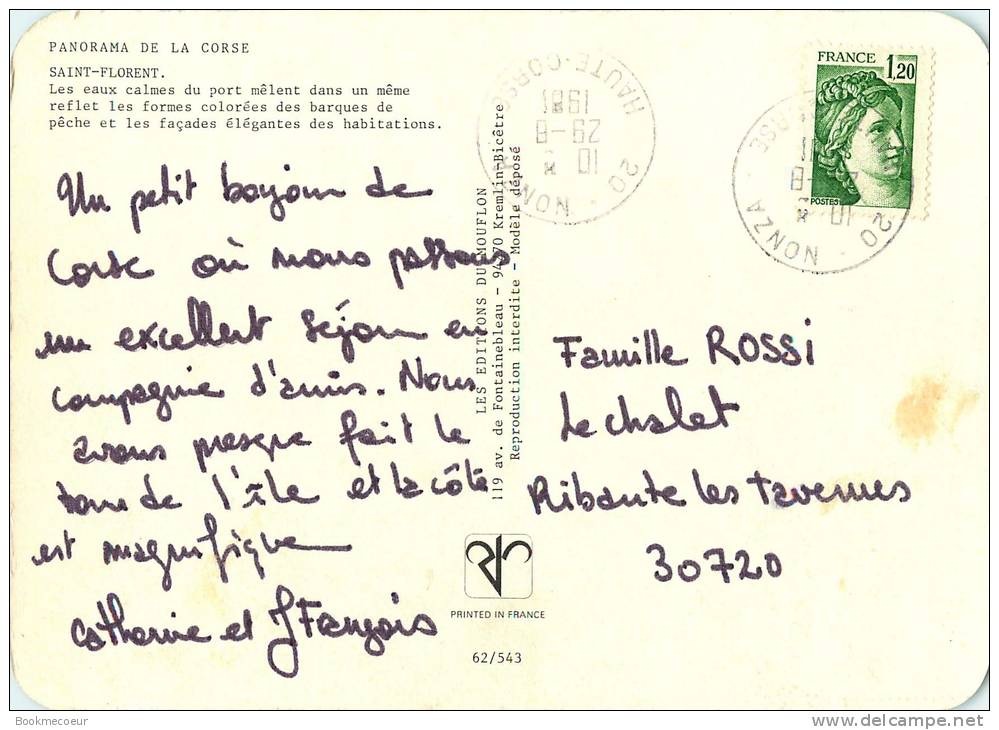 PANORAMA DE LA CORSE
SAINT-FLORENT.
Les eaux calmes du port mêlent dans un même
reflet les formes colorées des barques de
pêche et les façades élégantes des habitations.
Un petit bonjour de
Corse où nous passons
un excellent séjour en
compagnie d'amis. Nous
avons presque fait le
tour de l'île et la côte
est magnifique
Catherine et J François
LES EDITIONS DU MOUFLON
119 av. de Fontainebleau - 94270 Kremlin-Bicêtre
Reproduction interdite - Modèle déposé
PRINTED IN FRANCE
62/543
HAUTE-CORSE
1981
29-8
10 *
20 NONZA
FRANCE 1,20
POSTES
CORSE
10 *
20 NONZA
Famille ROSSI
Le chalet
Ribaute les tavernes
30720
Bookmecoeur
delcampe.net